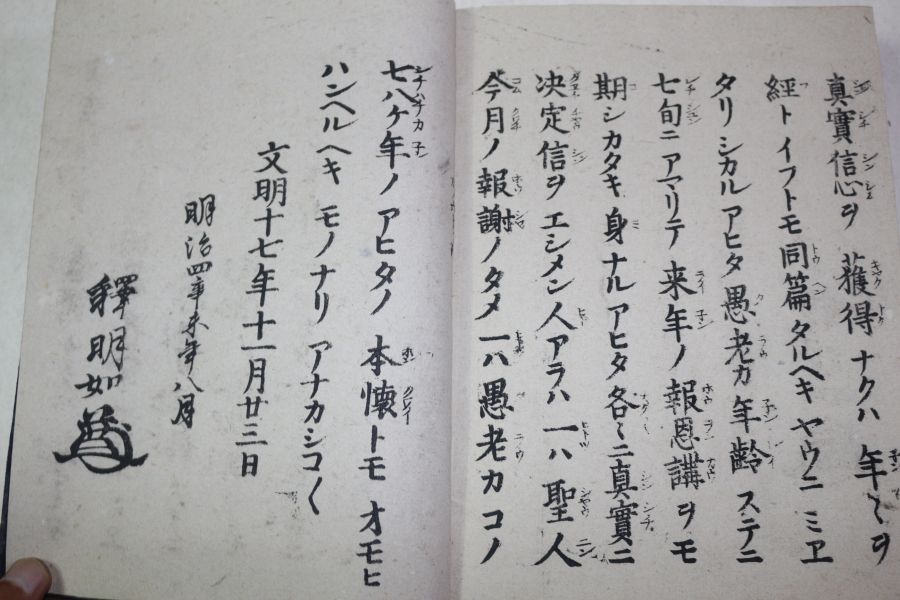 真實信心ヲ獲得ナクハ年〱ヲ
經トイフトモ同篇タルヘキヤウニミエ
タリシカルアヒタ愚老カ年齡ステニ
七旬ニアマリテ来年ノ報恩講ヲモ
期シカタキ身ナルアヒタ各〱ニ真實ニ
决定信ヲエシメン人アラハ一ハ聖人
今月ノ報謝ノタメ一ハ愚老カコノ
七八ケ年ノアヒタノ本懷トモオモヒ
ハンヘルヘキモノナリアナカシコ〱
文明十七年十一月廿三日
明治四辛未年八月
釋明如